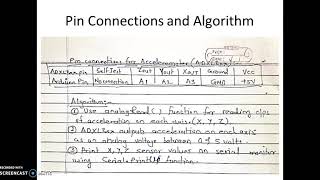 Pin Connections and Algorithm
Pin connections for Accelerometer (ADXL3xx)
ADXL3xx pin Self Test Zout Yout Xout Ground Vcc
Arduino Pin No connection A1 A2 A3 GND +5V
Algorithm:-
① Use analogRead() function for reading o/ps
of acceleration on each axis. (X, Y, Z)
② ADXL3xx outputs acceleration on each axis
as an analog voltage between 0 & 5 volts.
③ Print X, Y, Z sensor values on serial monitor
using Serial.Print() function.
RECORDED WITH
SCREENCAST